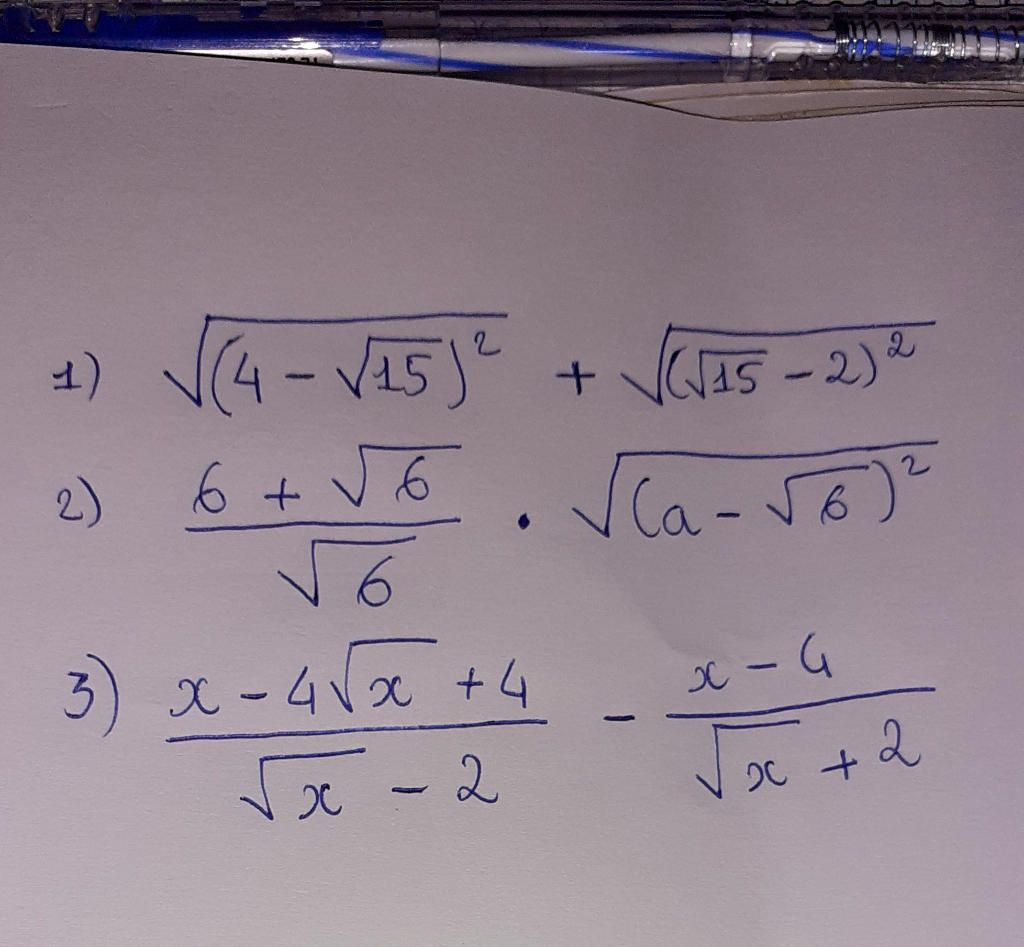 1) √(4 - √15)² + √(√15 - 2)²
2) (6 + √6)/√6 · √(a - √6)²
3) (x - 4√x + 4)/(√x - 2) - (x - 4)/(√x + 2)